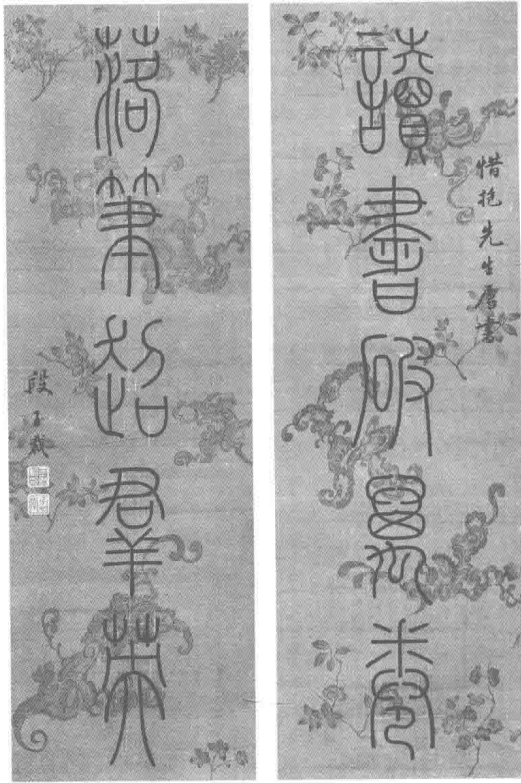 讀書破萬卷
惜抱先生屬書
落筆超羣英
段玉裁